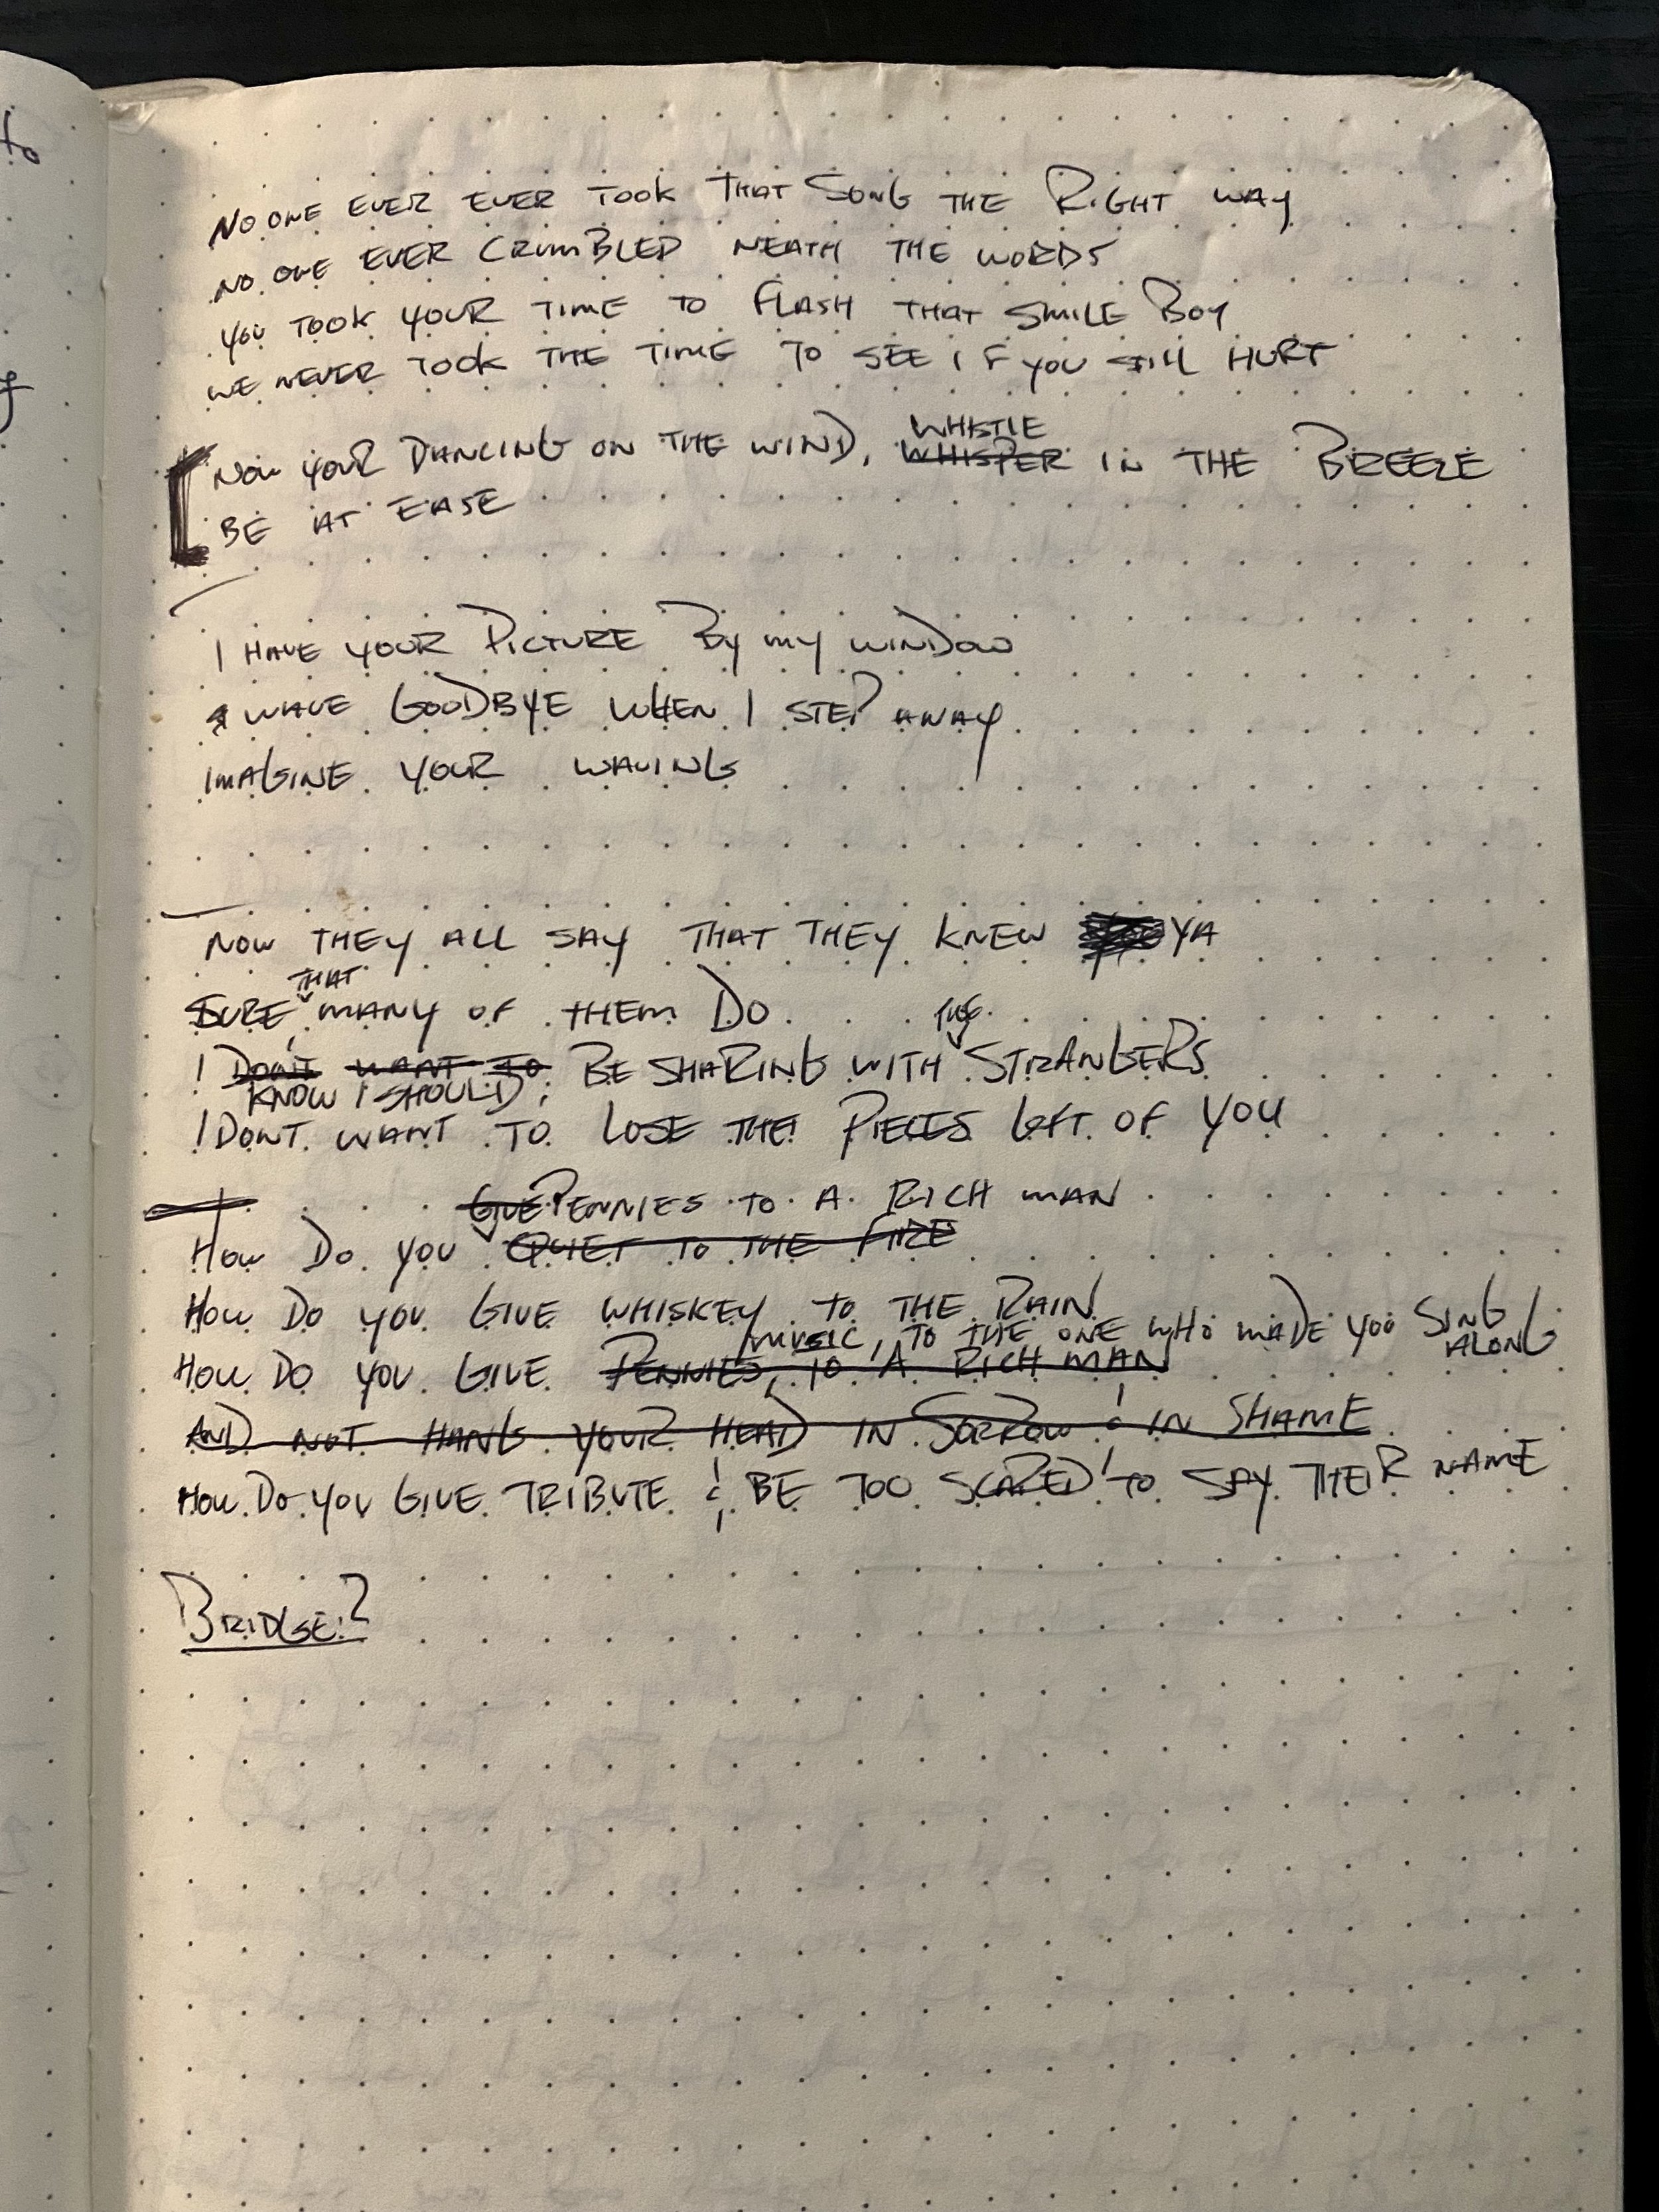 to
NO ONE EVER EVER TOOK THAT SONG THE RIGHT WAY
NO ONE EVER CRUMBLED NEATH THE WORDS
YOU TOOK YOUR TIME TO FLASH THAT SMILE BOY
WE NEVER TOOK THE TIME TO SEE IF YOU STILL HURT
WHISTLE
NOW YOUR DANCING ON THE WIND, WHISPER IN THE BREEZE
BE AT EASE
I HAVE YOUR PICTURE BY MY WINDOW
& WAVE GOODBYE WHEN I STEP AWAY
IMAGINE YOUR WAVING
NOW THEY ALL SAY THAT THEY KNEW YA
THAT
SURE MANY OF THEM DO
THE
I DON'T WANT TO BE SHARING WITH STRANGERS
KNOW I SHOULD
I DONT WANT TO LOSE THE PIECES LEFT OF YOU
GIVE PENNIES TO A RICH MAN
HOW DO YOU QUIET TO THE FIRE
HOW DO YOU GIVE WHISKEY TO THE RAIN
MUSIC, TO THE ONE WHO MADE YOU SING ALONG
HOW DO YOU GIVE PENNIES, TO A RICH MAN
AND NOT HANG YOUR HEAD IN SORROW & IN SHAME
HOW DO YOU GIVE TRIBUTE & BE TOO SCARED TO SAY THEIR NAME
BRIDGE?